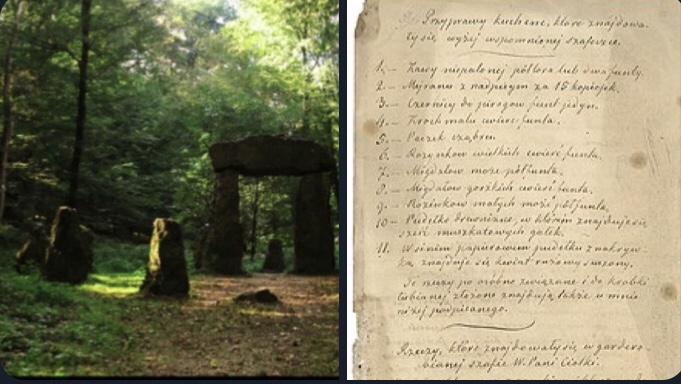 Przyprawy kuchenne, które znajdowa-
ły się wyżej wspomnionej szafeczce.
1. — Kawy niepalonej półtora lub dwa funty.
2. — Majranu z nadpisem za 15 kopiejek.
3. — Czernicy do pierogów funt jeden.
4. — Krochmalu ćwierć funta.
5. — Paczek cząbru.
6. — Rozynków wielkich ćwierć funta.
7. — Migdałów może półfunta.
8. — Migdałów gorzkich ćwierć funta.
9. — Rozinków małych może półfunta.
10 — Pudełko drewniane, w którém znajduje się
sześć muszkatowych gałek.
11. W siném papierowém pudełku z nakryw-
ką znajduje się kwiat różowy suszony.
Te rzeczy po osóbno związane i do krobki
łubianej złożone znajdują także u mnie
niżej podpisanego.
Rzeczy, które znajdowały się w gardero-
bianej szafie W. Pani Ciotki.